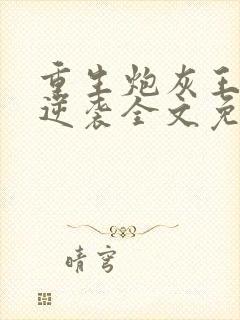 重生炮灰王
逆袭全文免
晴穹